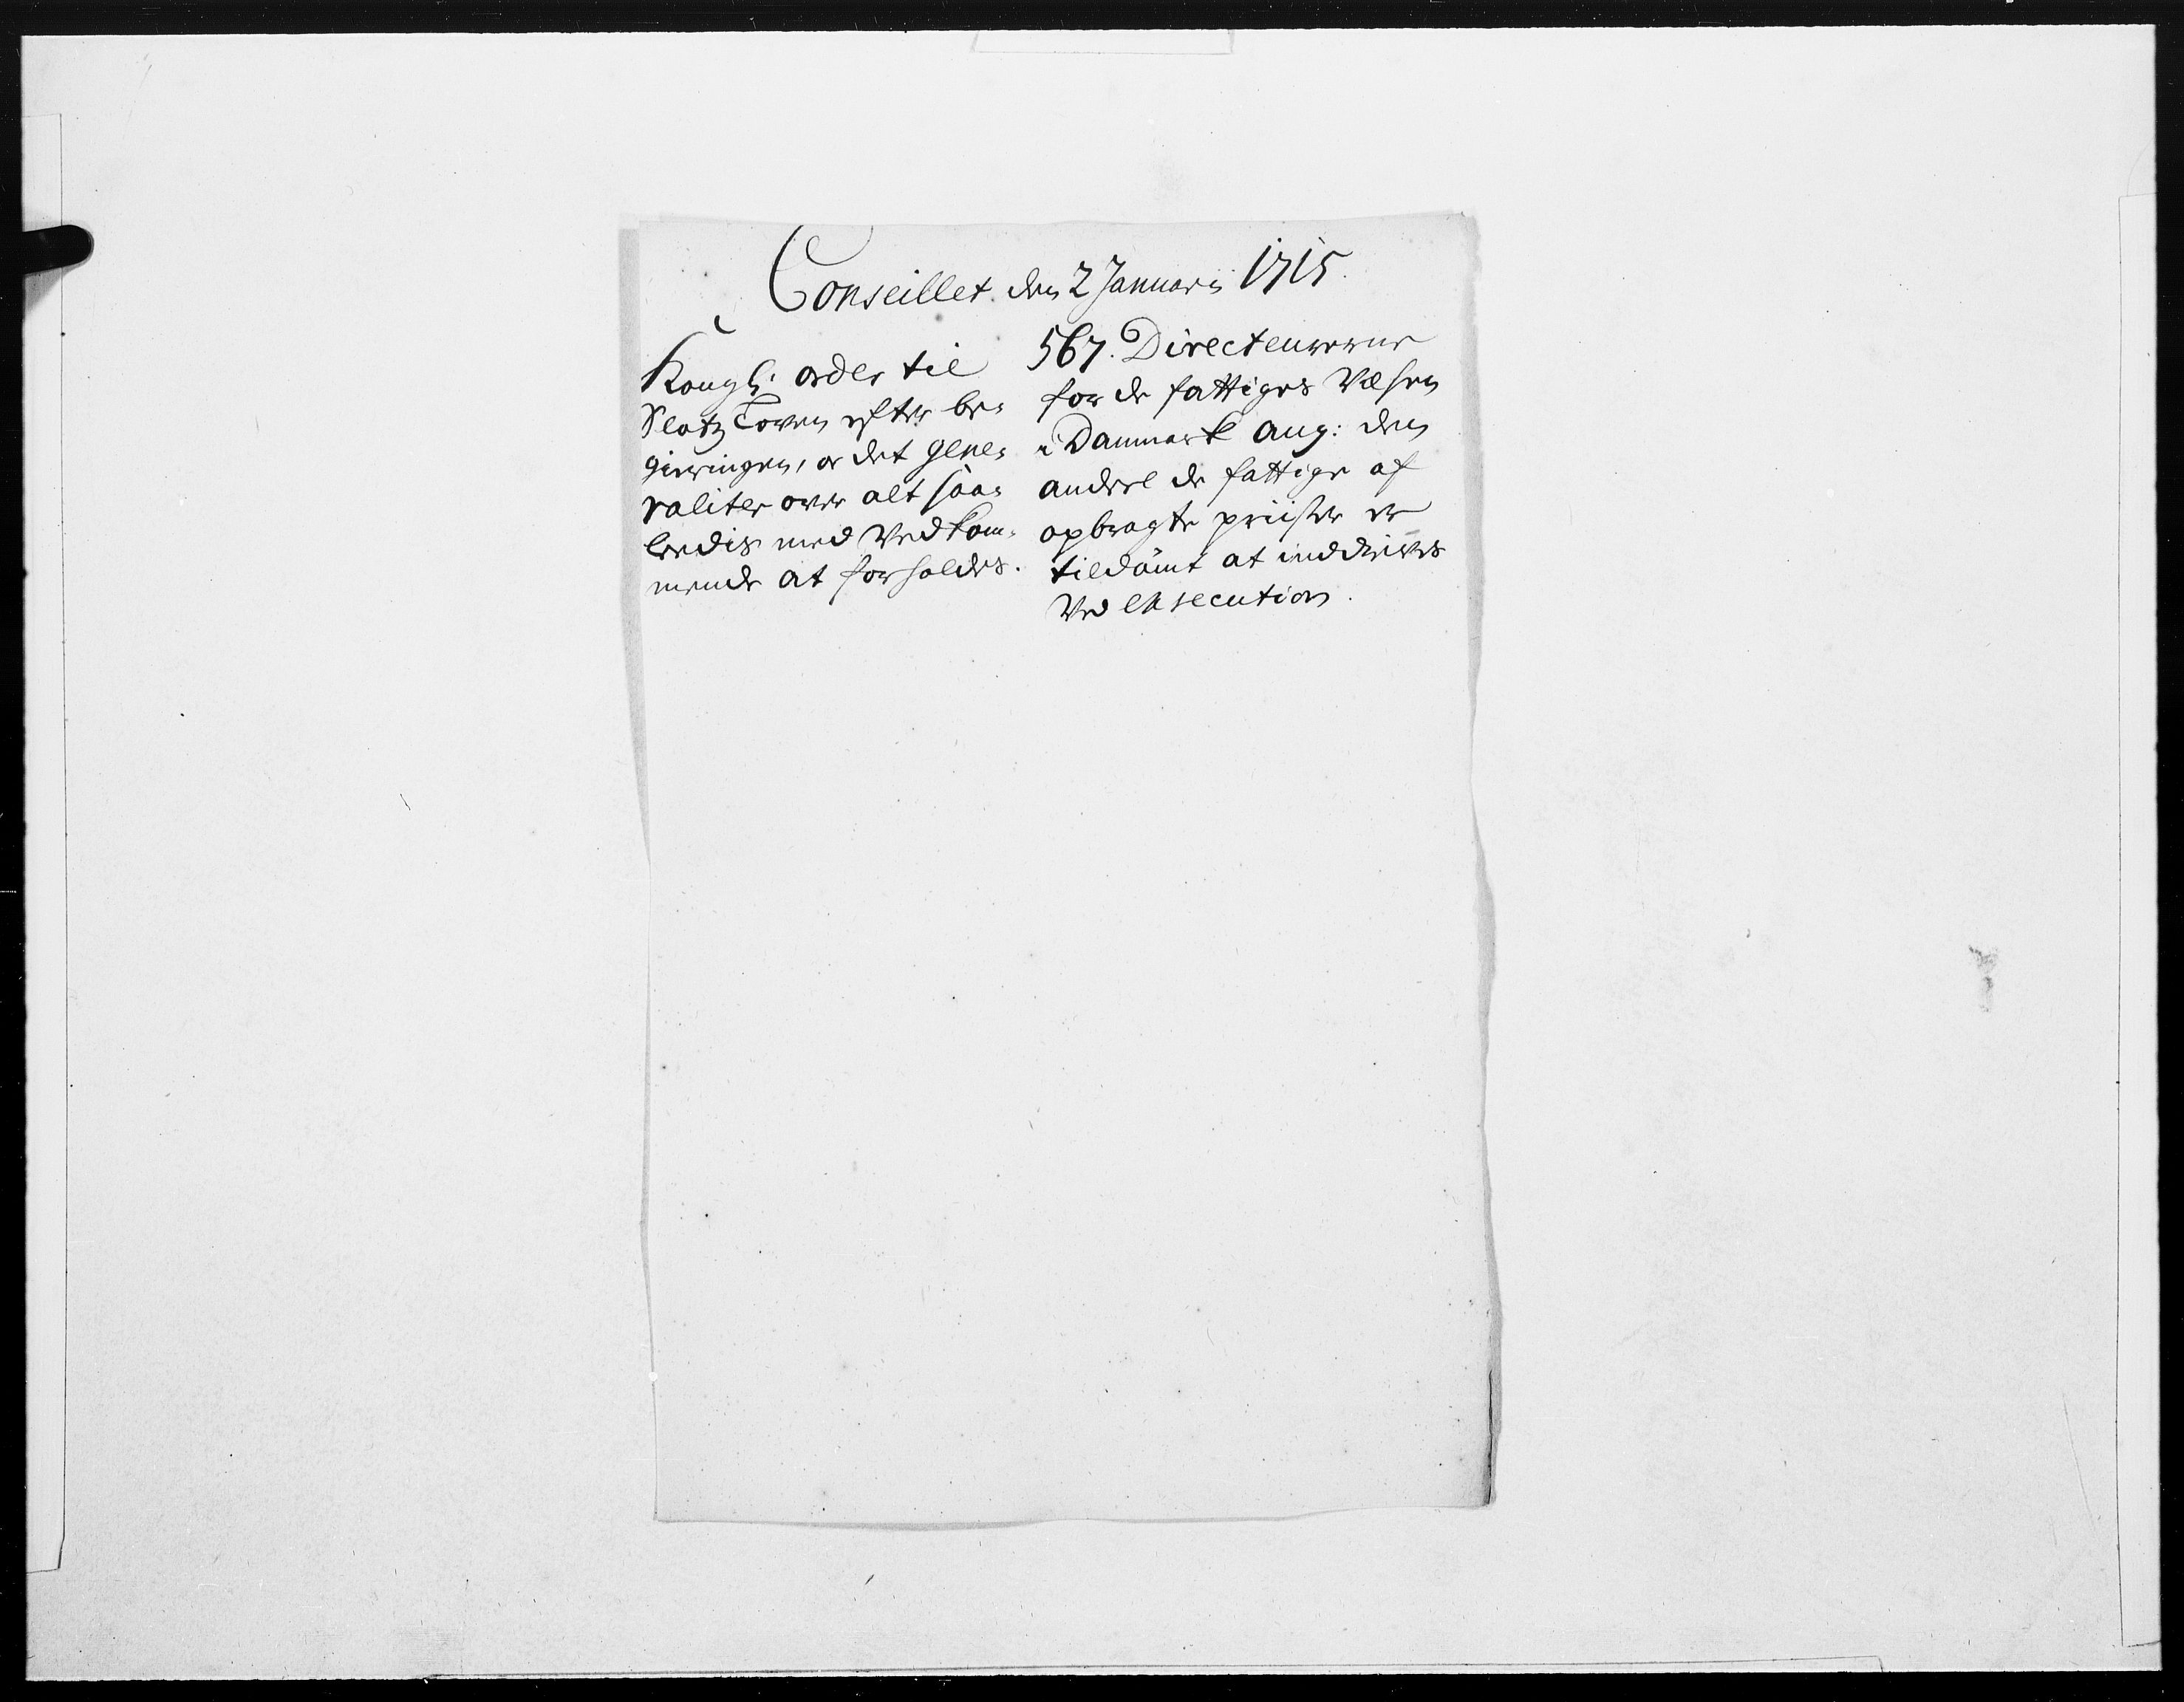 Conseillet den 2 Januarii 1715.
Kongl: order til
Slotz Loven efter be-
gieringen, og det gene-
raliter over alt saa-
ledis med Vedkom-
mende at forholdes.
567. Directeurerne
for de fattiges Væsen
i Danmark ang: den
andeel de fattige af
opbragte priiser er
tildømt at inddrives
Ved execution.